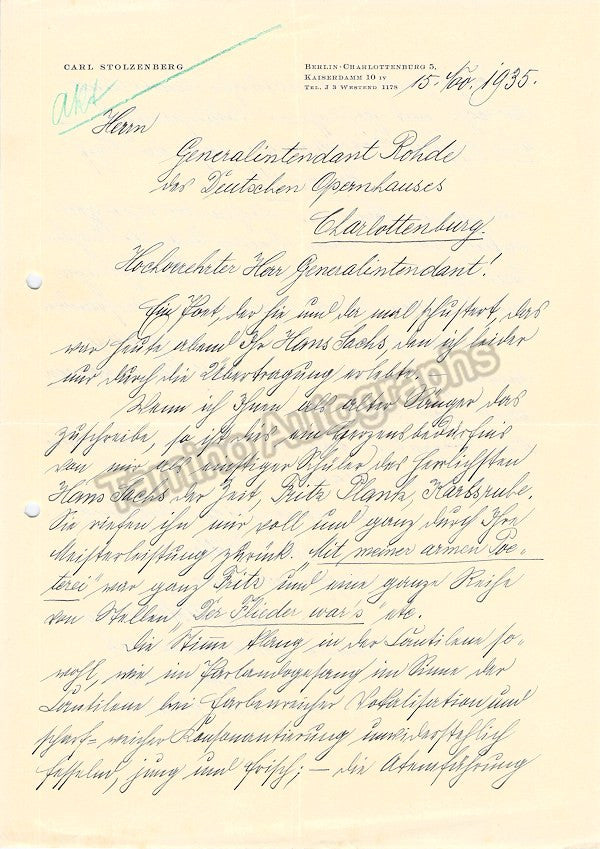 CARL STOLZENBERG
BERLIN-CHARLOTTENBURG 5,
KAISERDAMM 10 IV
TEL. J 3 WESTEND 1178
15. Nov. 1935.
akt
Herrn
Generalintendant Rohde
des Deutschen Opernhauses
Charlottenburg.
Hochverehrter Herr Generalintendant!
Ein Poet, der hie und da mal schustert, das
war heute abend Ihr Hans Sachs, den ich leider
nur durch die Übertragung erlebte. –
Wenn ich Ihnen als alter Sänger das
zuschreibe, so ist das ein Herzensbedürfnis
von mir als einstiger Schüler des herrlichsten
Hans Sachs der Zeit, Fritz Plank, Karlsruhe.
Sie riefen ihn mir voll und ganz durch Ihre
Meisterleistung zurück. „Mit meiner armen Poe-
terei" war ganz Fritz und eine ganze Reihe
von Stellen „Der Flieder war's" etc.
Die Stimme klang in der Cantilene so-
wohl, wie im Parlandogesang im Sinne der
Cantilene bei farbenreicher Vokalisation und
scharf-weicher Konsonantierung unwiderstehlich
fesselnd, jung und frisch; – die Atemführung
Tamino Autographs